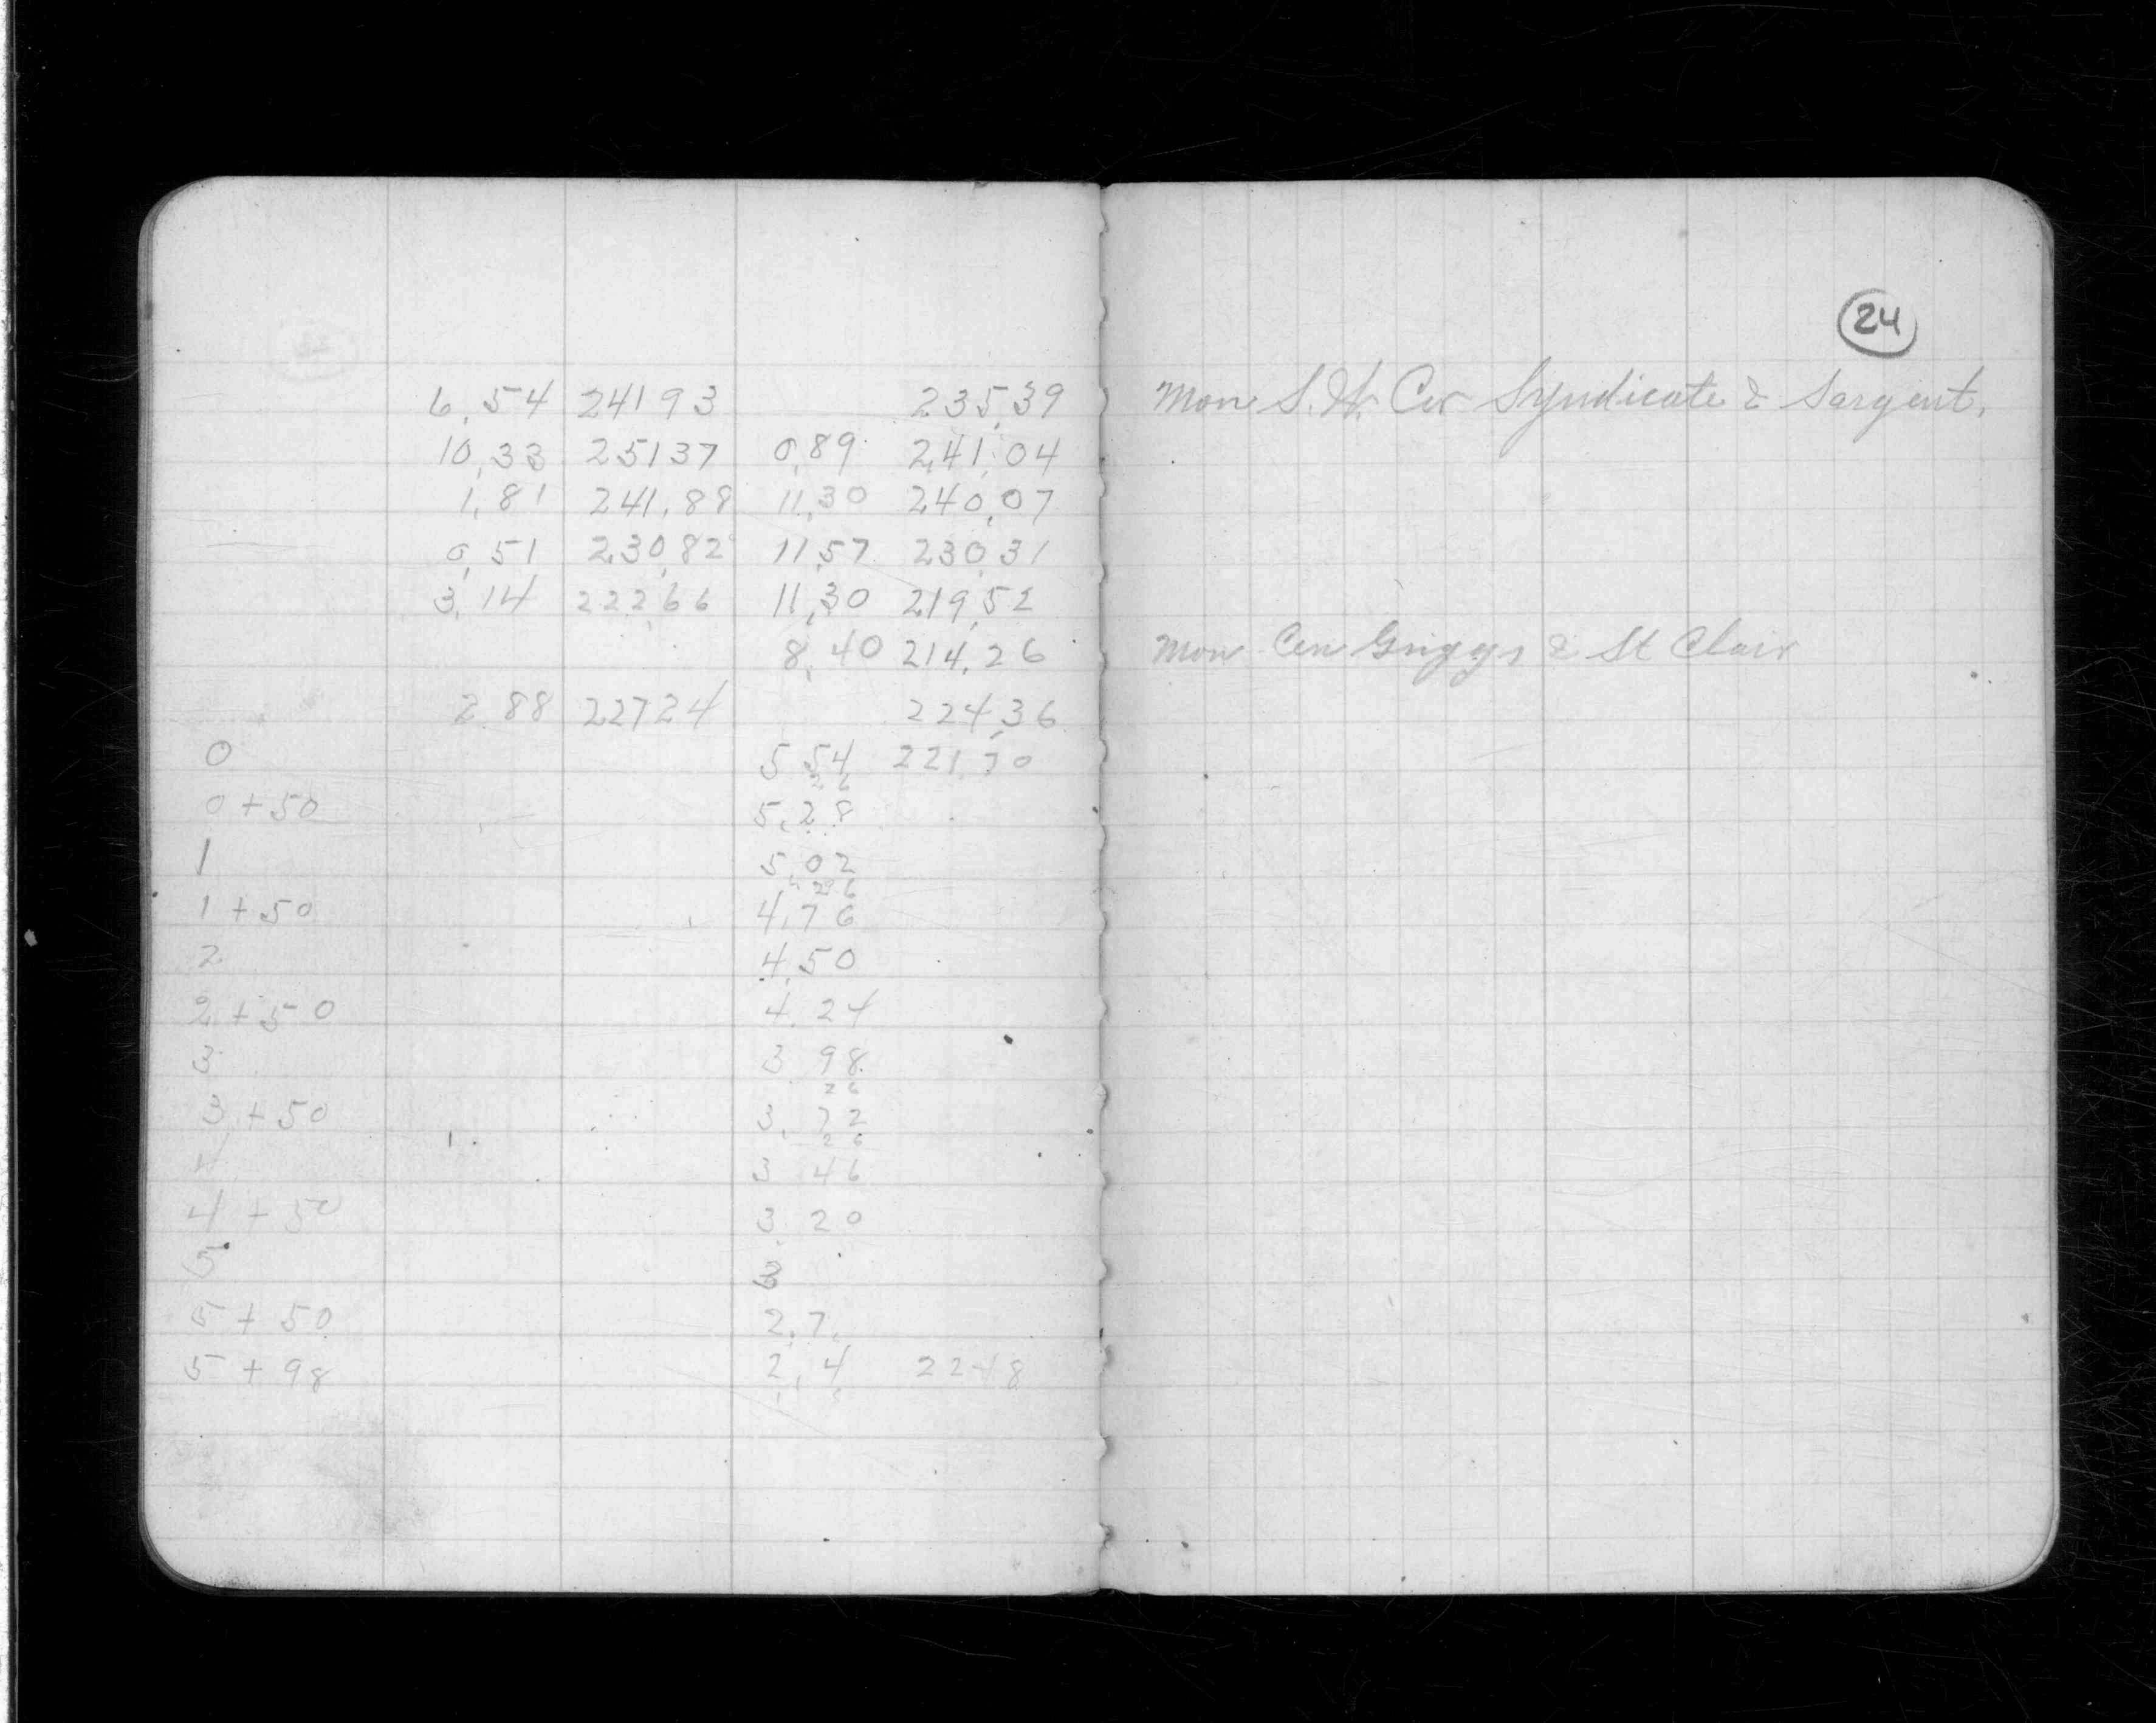 24
6,54 24193 235,39 Mon S.W. Cor Syndicate & Sargent.
10,33 25137 0,89 241,04
1,81 241,88 11,30 240,07
0,51 230,82 11,57 230,31
3,14 222,66 11,30 219,52
8,40 214,26 Mon Cen Griggs & St Clair
2.88 22724 224,36
0 5 54 221,70
26
0+50 5,28
1 5,02
26
1+50 4,76
2 4,50
2+50 4.24
3 3 98
26
3+50 3,72
26
4 3 46
4+50 3.20
5 3
5+50 2.7
5+98 2,4 2248